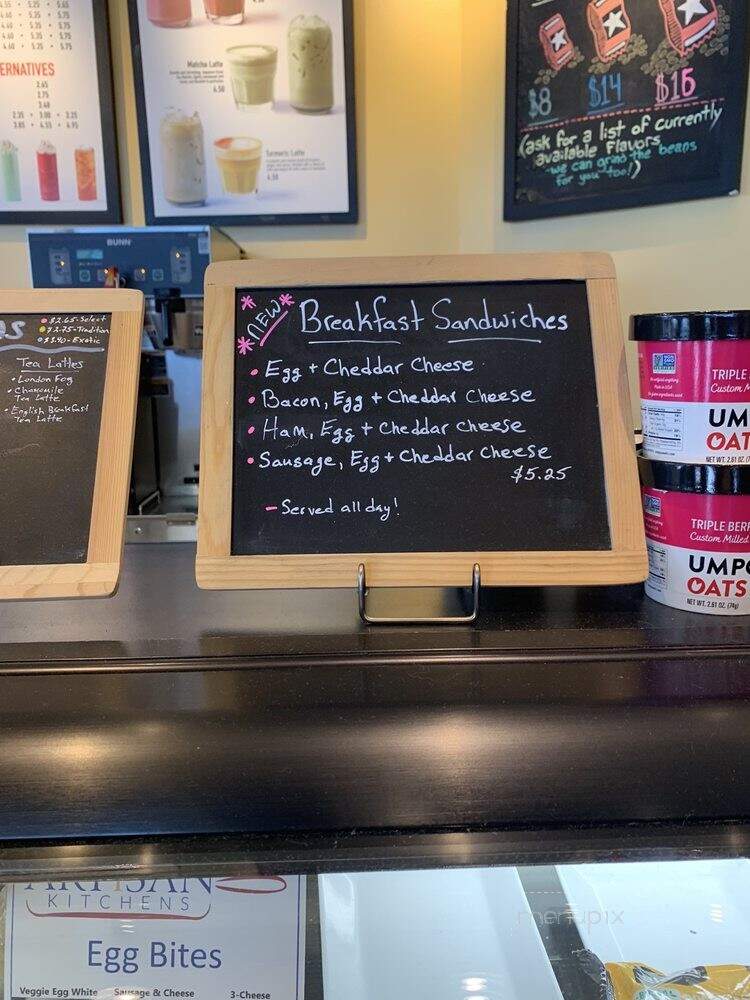 4.55 5.25 5.75
4.40 5.25 5.75
ERNATIVES
2.65
2.75
3.40
Matcha Latte
4.50
Turmeric Latte
4.50
$8 $14 $16
(ask for a list of currently
available flavors
-we can grind the beans
for you too!)
BUNN
$2.65-Select
$2.75-Tradition
$3.40-Exotic
Tea Lattes
• London Fog
• Chamomile
Tea Latte
• English Breakfast
Tea Latte
*NEW*
Breakfast Sandwiches
• Egg + Cheddar Cheese
• Bacon, Egg + Cheddar Cheese
• Ham, Egg + Cheddar cheese
• Sausage, Egg + Cheddar cheese
$5.25
- Served all day!
TRIPLE
Custom M
UM
OAT
NET WT. 2.61 OZ. (7
TRIPLE BERR
Custom Milled
UMPQ
OATS
NET WT. 2.61 OZ. (74g)
ARTISAN
KITCHENS
Egg Bites
Veggie Egg White Sausage & Cheese 3-Cheese
menupix